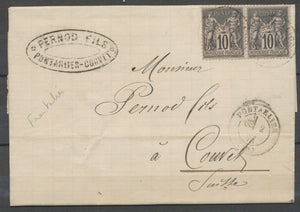 PERNOD FILS
PONTARLIER-COUVET
10 10
Monsieur
Pernod fils
à Couvet
Suisse
PONTARLIER
2